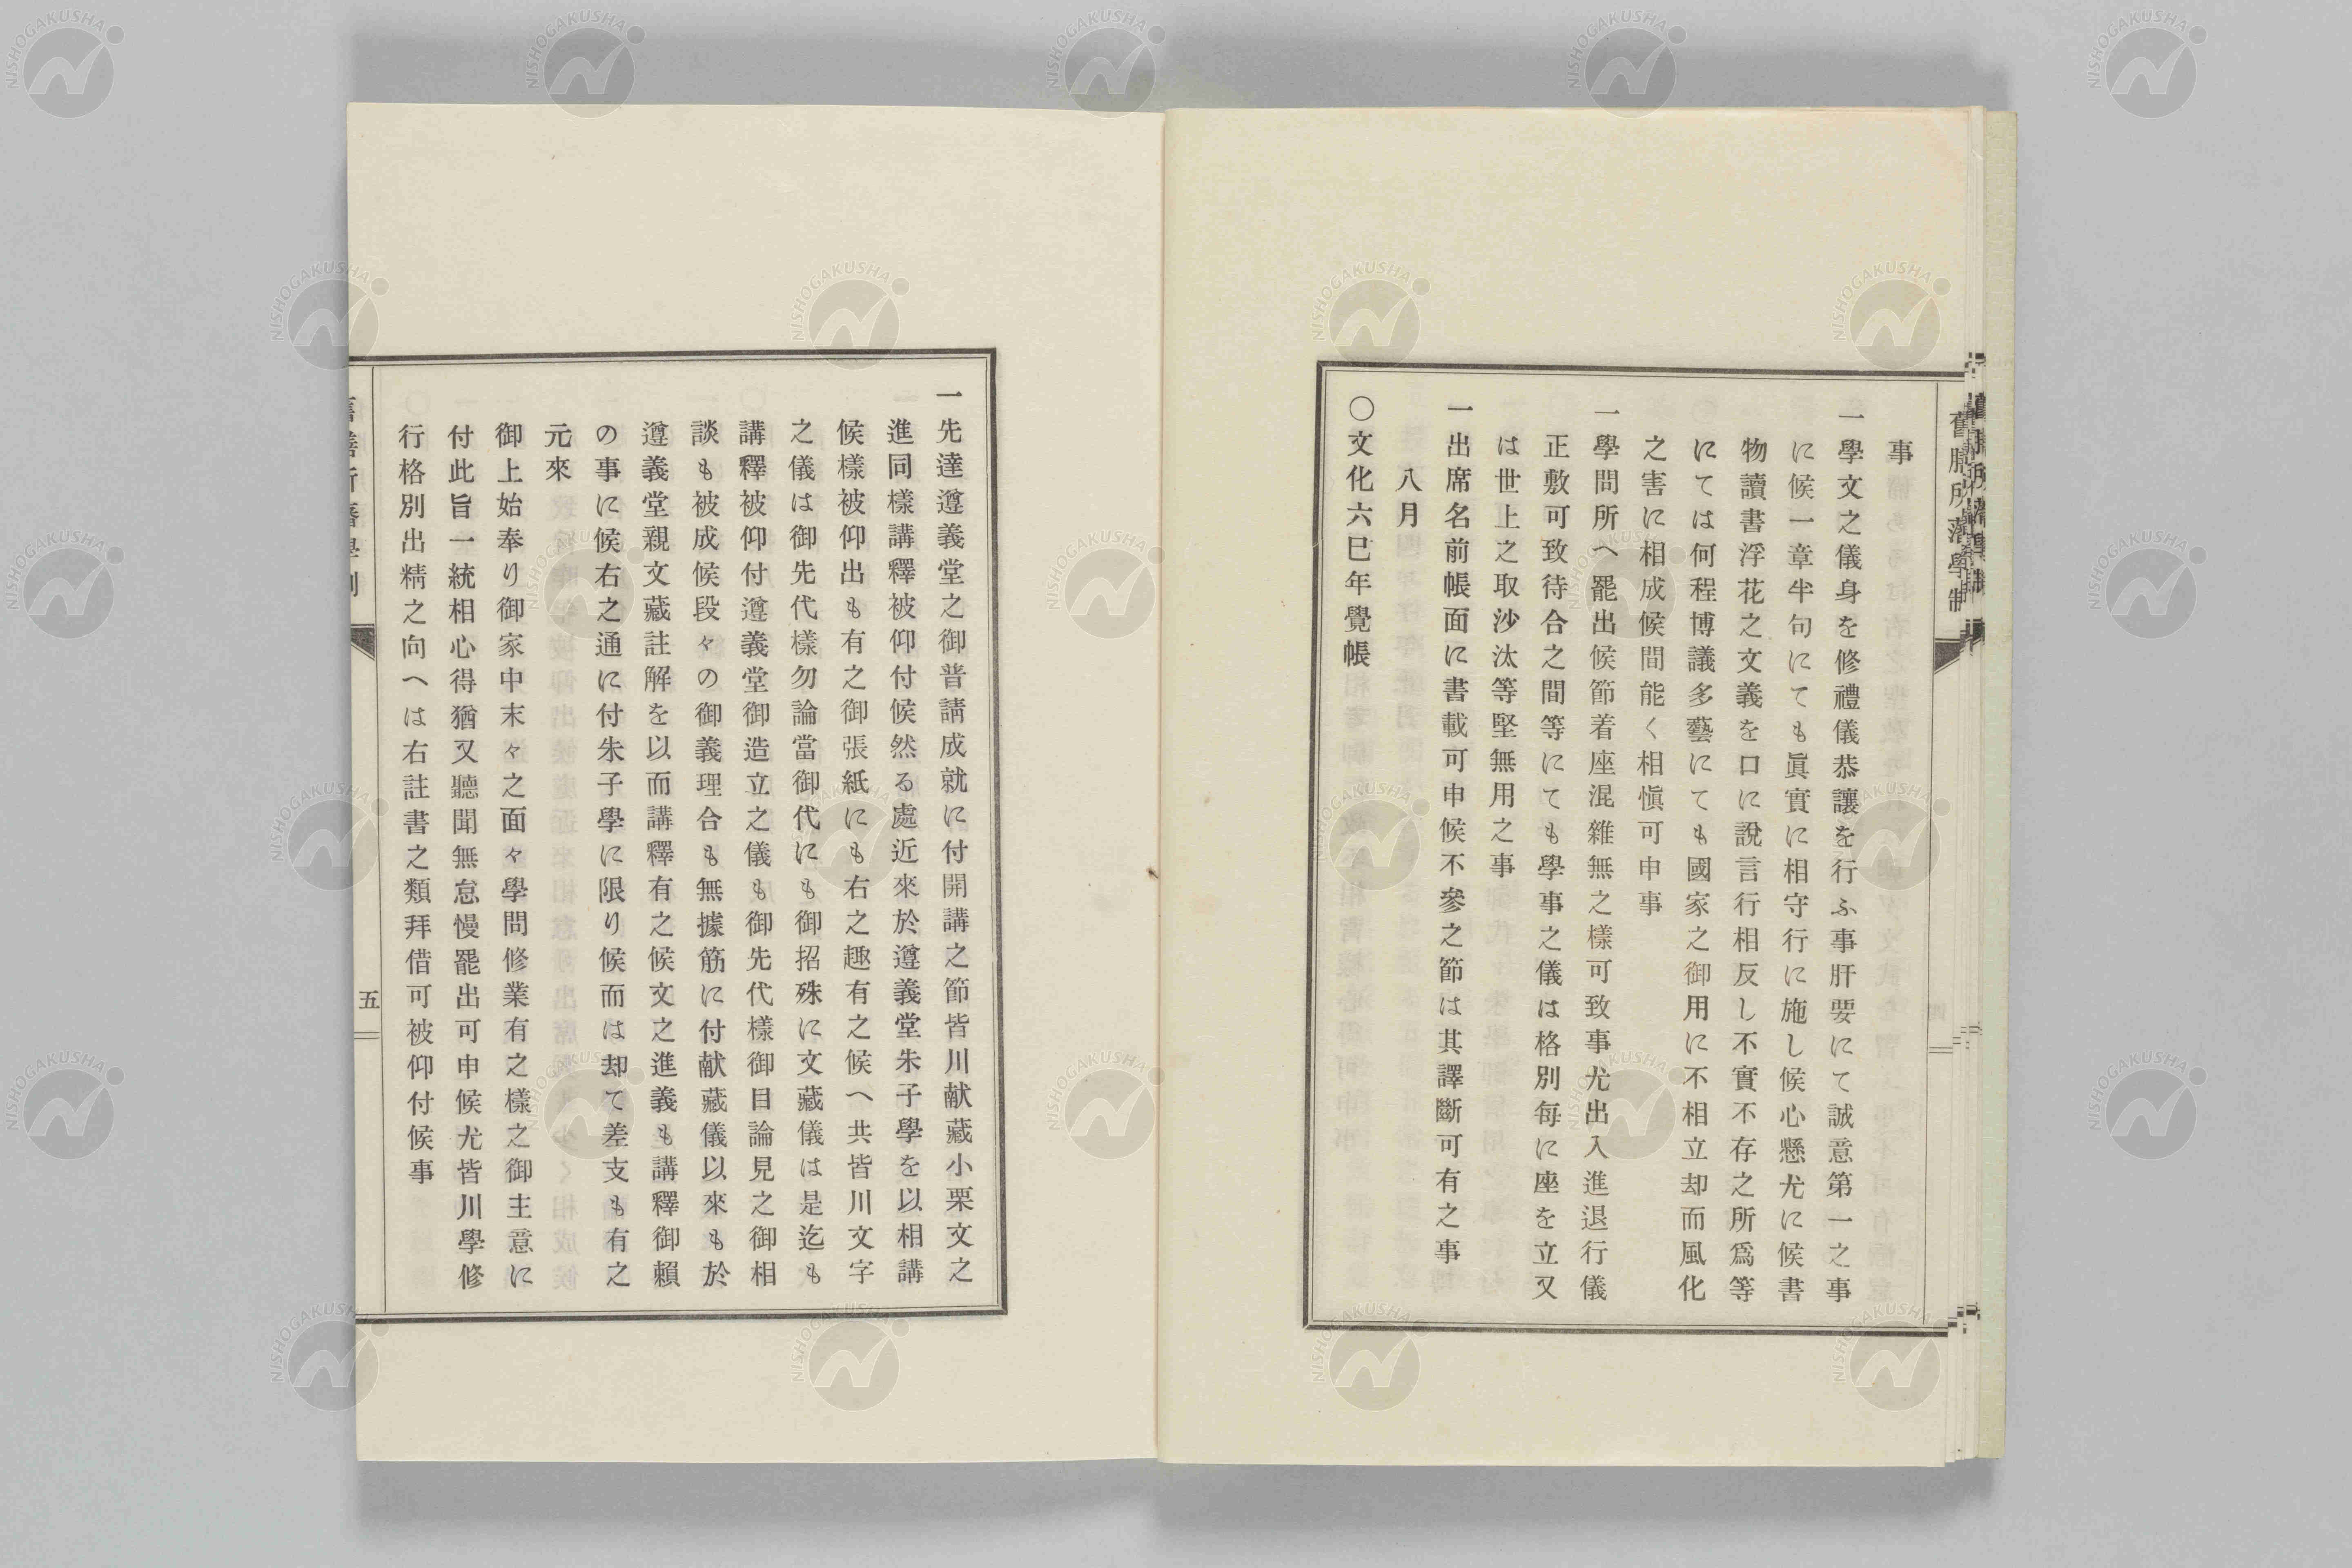 舊膳所藩學制
事
一學文之儀身を修禮儀恭讓を行ふ事肝要にて誠意第一之事
に候一章半句にても眞實に相守行に施し候心懸尤に候書
物讀書浮花之文義を口に說言行相反し不實不存之所爲等
にては何程博議多藝にても國家之御用に不相立却而風化
之害に相成候間能く相愼可申事
一學問所へ罷出候節着座混雜無之樣可致事尤出入進退行儀
正敷可致待合之間等にても學事之儀は格別每に座を立又
は世上之取沙汰等堅無用之事
一出席名前帳面に書載可申候不參之節は其譯斷可有之事
八月
〇文化六巳年覺帳
一先達遵義堂之御普請成就に付開講之節皆川献藏小栗文之
進同樣講釋被仰付候然る處近來於遵義堂朱子學を以相講
候樣被仰出も有之御張紙にも右之趣有之候へ共皆川文字
之儀は御先代樣勿論當御代にも御招殊に文藏儀は是迄も
講釋被仰付遵義堂御造立之儀も御先代樣御目論見之御相
談も被成候段々の御義理合も無據筋に付献藏儀以來も於
遵義堂親文藏註解を以而講釋有之候文之進義も講釋御賴
の事に候右之通に付朱子學に限り候而は却て差支も有之
元來
御上始奉り御家中末々之面々學問修業有之樣之御主意に
付此旨一統相心得猶又聽聞無怠慢罷出可申候尤皆川學修
行格別出精之向へは右註書之類拜借可被仰付候事
五
NISHOGAKUSHA